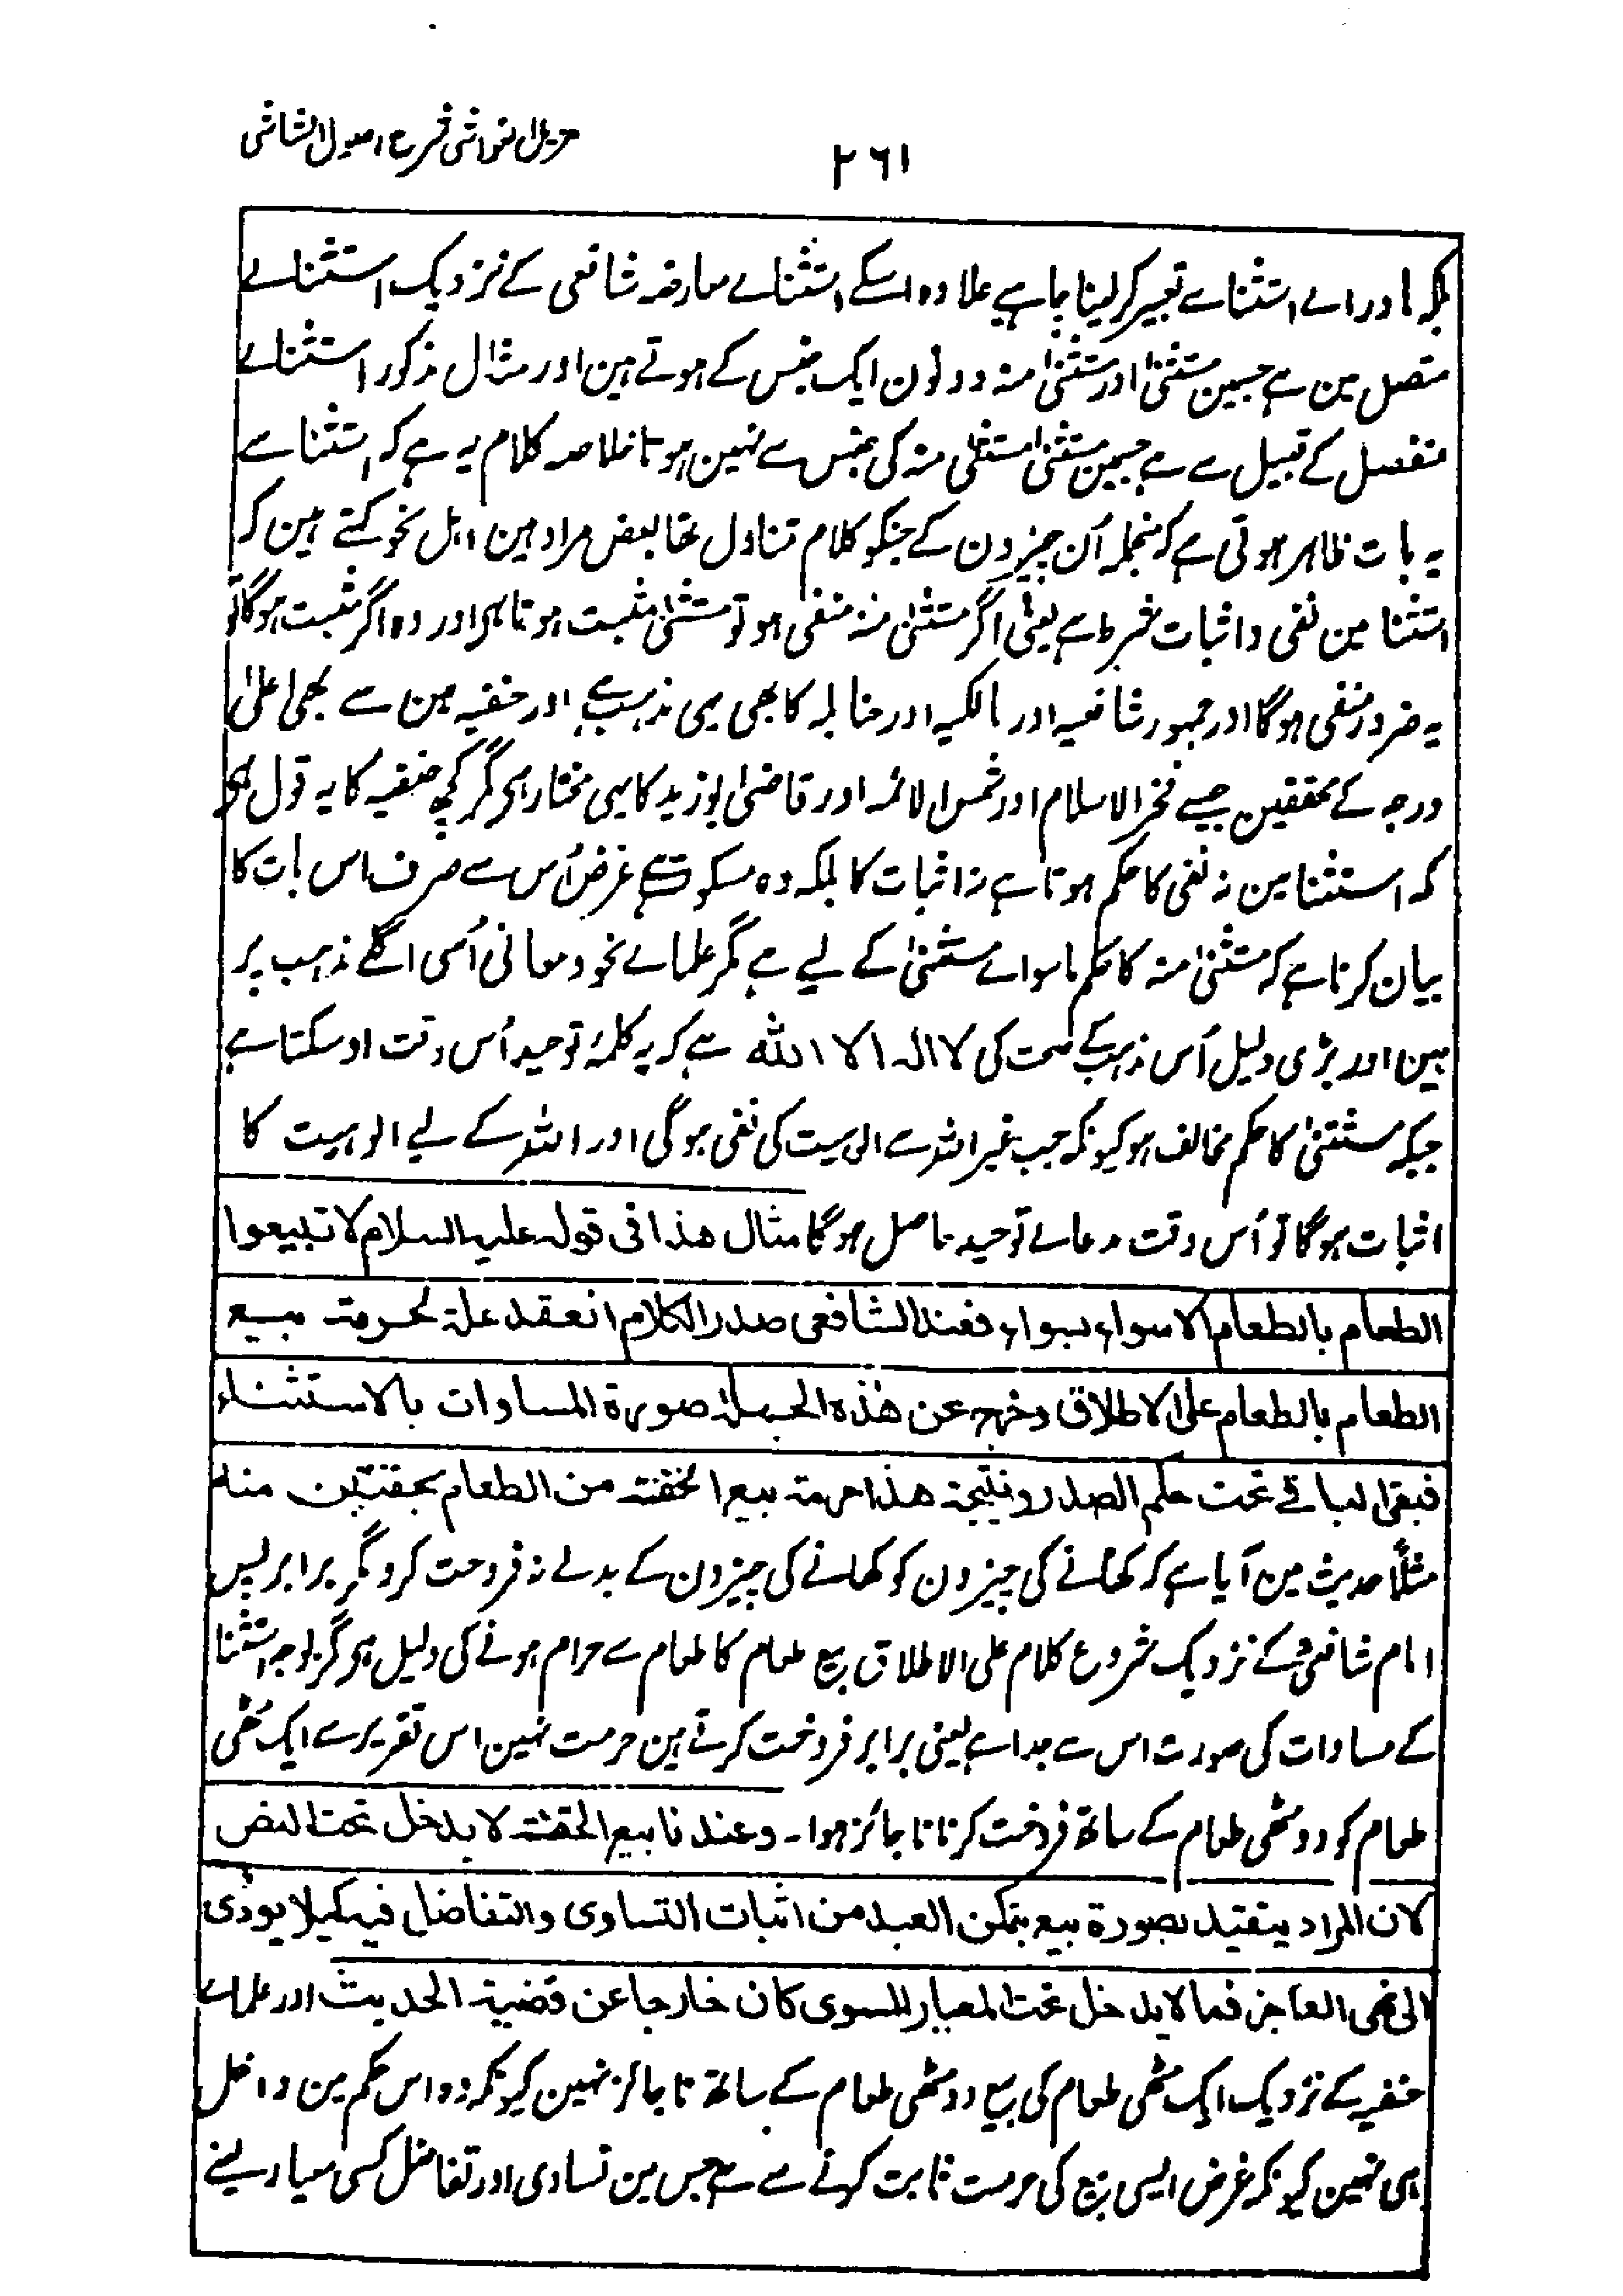 مزیل الغواشی شرح اصول الشاشی
۲۶۱
بلکہ ماوراے استثناے تعبیر کر لینا چاہیے علاوہ اسکے استثناے معارضہ شافعی کے نزدیک استثناے
متصل مین ہے جسمین مستثنیٰ اور مستثنیٰ منہ دونون ایک جنس کے ہوتے ہین اور مثال مذکور استثناے
منفصل کے قبیل سے ہے جسمین مستثنیٰ مستثنیٰ منہ کی جنس سے نہین ہوتا خلاصہ کلام یہ ہے کہ استثنا سے
یہ بات ظاہر ہوتی ہے کہ منجملہ اُن چیزون کے جنکو کلام متناول تھا بعض مراد ہین اہل نحو کہتے ہین کہ
استثنا مین نفی و اثبات شرط ہے یعنی اگر مستثنیٰ منہ منفی ہو تو مستثنیٰ مثبت ہوتا ہی اور وہ اگر مثبت ہوگا تو
یہ ضرور منفی ہوگا اور جمہور شافعیہ اور مالکیہ اور حنابلہ کا بھی یہی مذہب ہے اور حنفیہ مین سے بھی اعلیٰ
درجہ کے محققین جیسے فخر الاسلام اور شمس الائمہ اور قاضی ابوزید کا یہی مختار ہی مگر کچھ حنفیہ کا یہ قول ہی
کہ استثنا مین نہ نفی کا حکم ہوتا ہے نہ اثبات کا بلکہ وہ مسکوت ہے غرض اُس سے صرف اس بات کا
بیان کرنا ہے کہ مستثنیٰ منہ کا حکم ماسواے مستثنیٰ کے لیے ہے مگر علماے نحو و معانی اُسی اگلے مذہب پر
ہین اور بڑی دلیل اُس مذہب کے صحت کی لا الہ الا اللہ ہے کہ یہ کلمۂ توحید اُس وقت ہو سکتا ہے
جبکہ مستثنیٰ کا حکم مخالف ہو کیونکہ جب غیر اللہ سے الوہیت کی نفی ہوگی اور اللہ کے لیے الوہیت کا
اثبات ہوگا تو اُس وقت مدعاے توحید حاصل ہوگا مثال ھذا فی قولہ علیہ السلام لا تبیعوا
الطعام بالطعام الا سواء بسواء فعند الشافعی صدر الکلام انعقد علۃ لحرمۃ بیع
الطعام بالطعام علی الاطلاق وخرج عن ھذہ الجملۃ صورۃ المساوات بالاستثناء
فبقی الباقے تحت حکم الصدر ونتیجۃ ھذا حرمۃ بیع الحفنۃ من الطعام بحفنتین منہ
مثلًا حدیث مین آیا ہے کہ کھانے کی چیزون کو کھانے کی چیزون کے بدلے نہ فروخت کرو مگر برابر پس
امام شافعیؒ کے نزدیک شروع کلام علی الاطلاق بیع طعام کا طعام سے حرام ہونے کی دلیل ہی مگر بوجہ استثنا
کے مساوات کی صورت اس سے جدا ہے یعنی برابر فروخت کرتے ہین حرمت نہین اس تقریر سے ایک مٹھی
طعام کو دو مٹھی طعام کے ساتھ فروخت کرنا ناجائز ہوا ۔ وعندنا بیع الحفنۃ لا یدخل تحت النص
لان المراد یتقید بصورۃ بیع یتمکن العبد من اثبات التساوی والتفاضل فیہ کیلا یودی
الی نھی العاجز فما لا یدخل تحت المعیار المسوی کان خارجا عن قضیۃ الحدیث اور علماے
حنفیہ کے نزدیک ایک مٹھی طعام کی بیع دو مٹھی طعام کے ساتھ ناجائز نہین کیونکہ وہ اس حکم مین داخل
ہی نہین کیونکہ غرض ایسی بیع کی حرمت ثابت کرنے سے ہے جس مین تساوی اور تفاضل کسی معیار یعنے